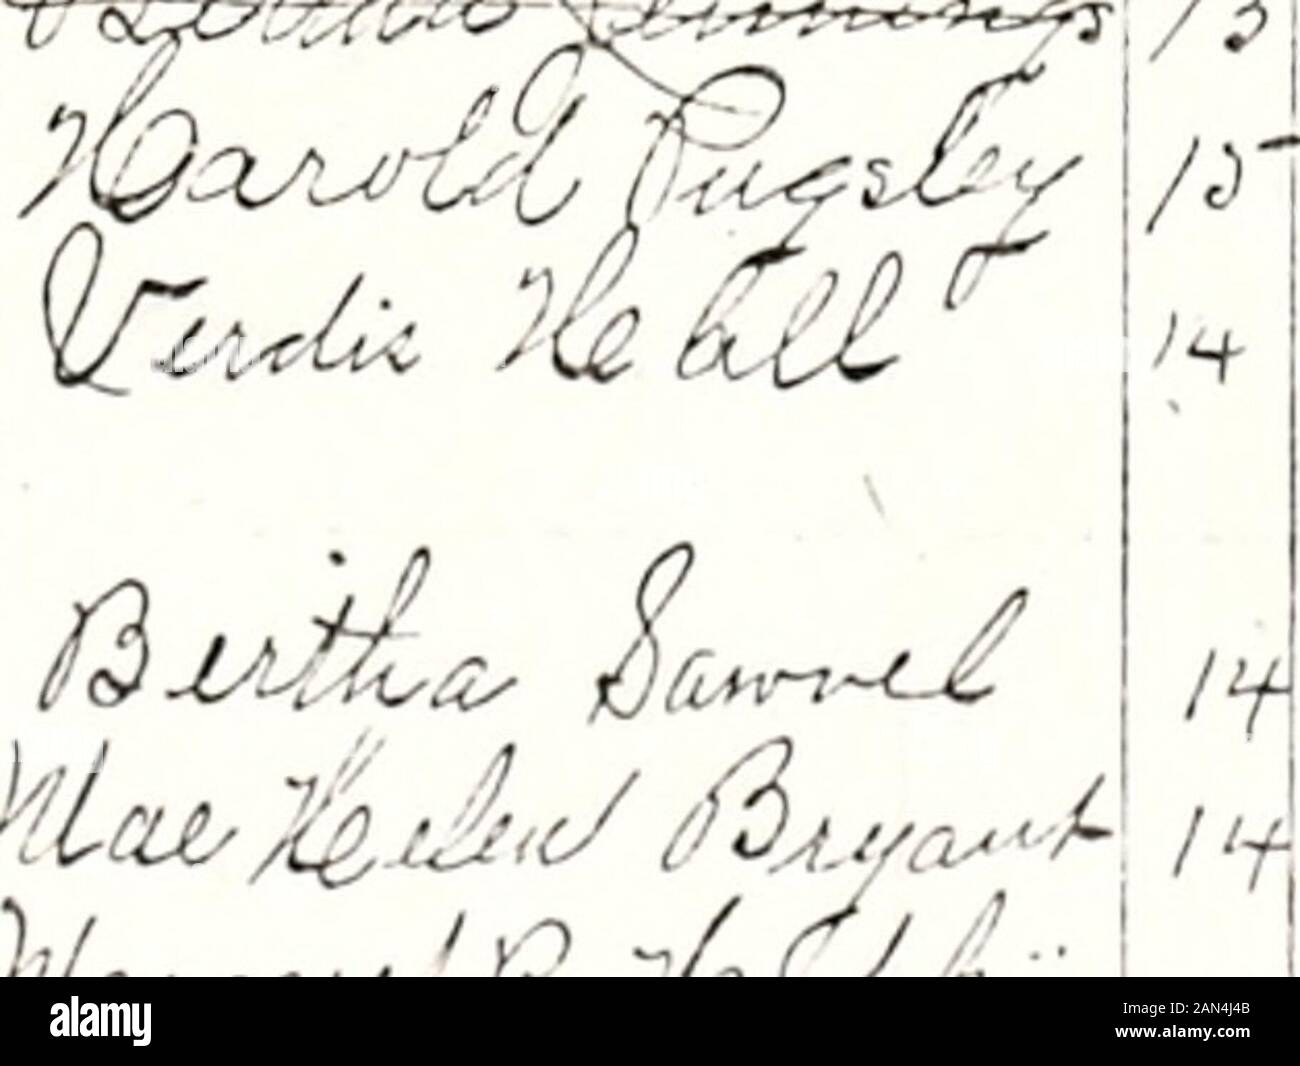 Jennings 13
Harold Pugsley 15
Verdis Heball 14
Bertha Sawvel 14
Mae Helen Bryant 14
alamy
Image ID: 2AN4J4B
www.alamy.com